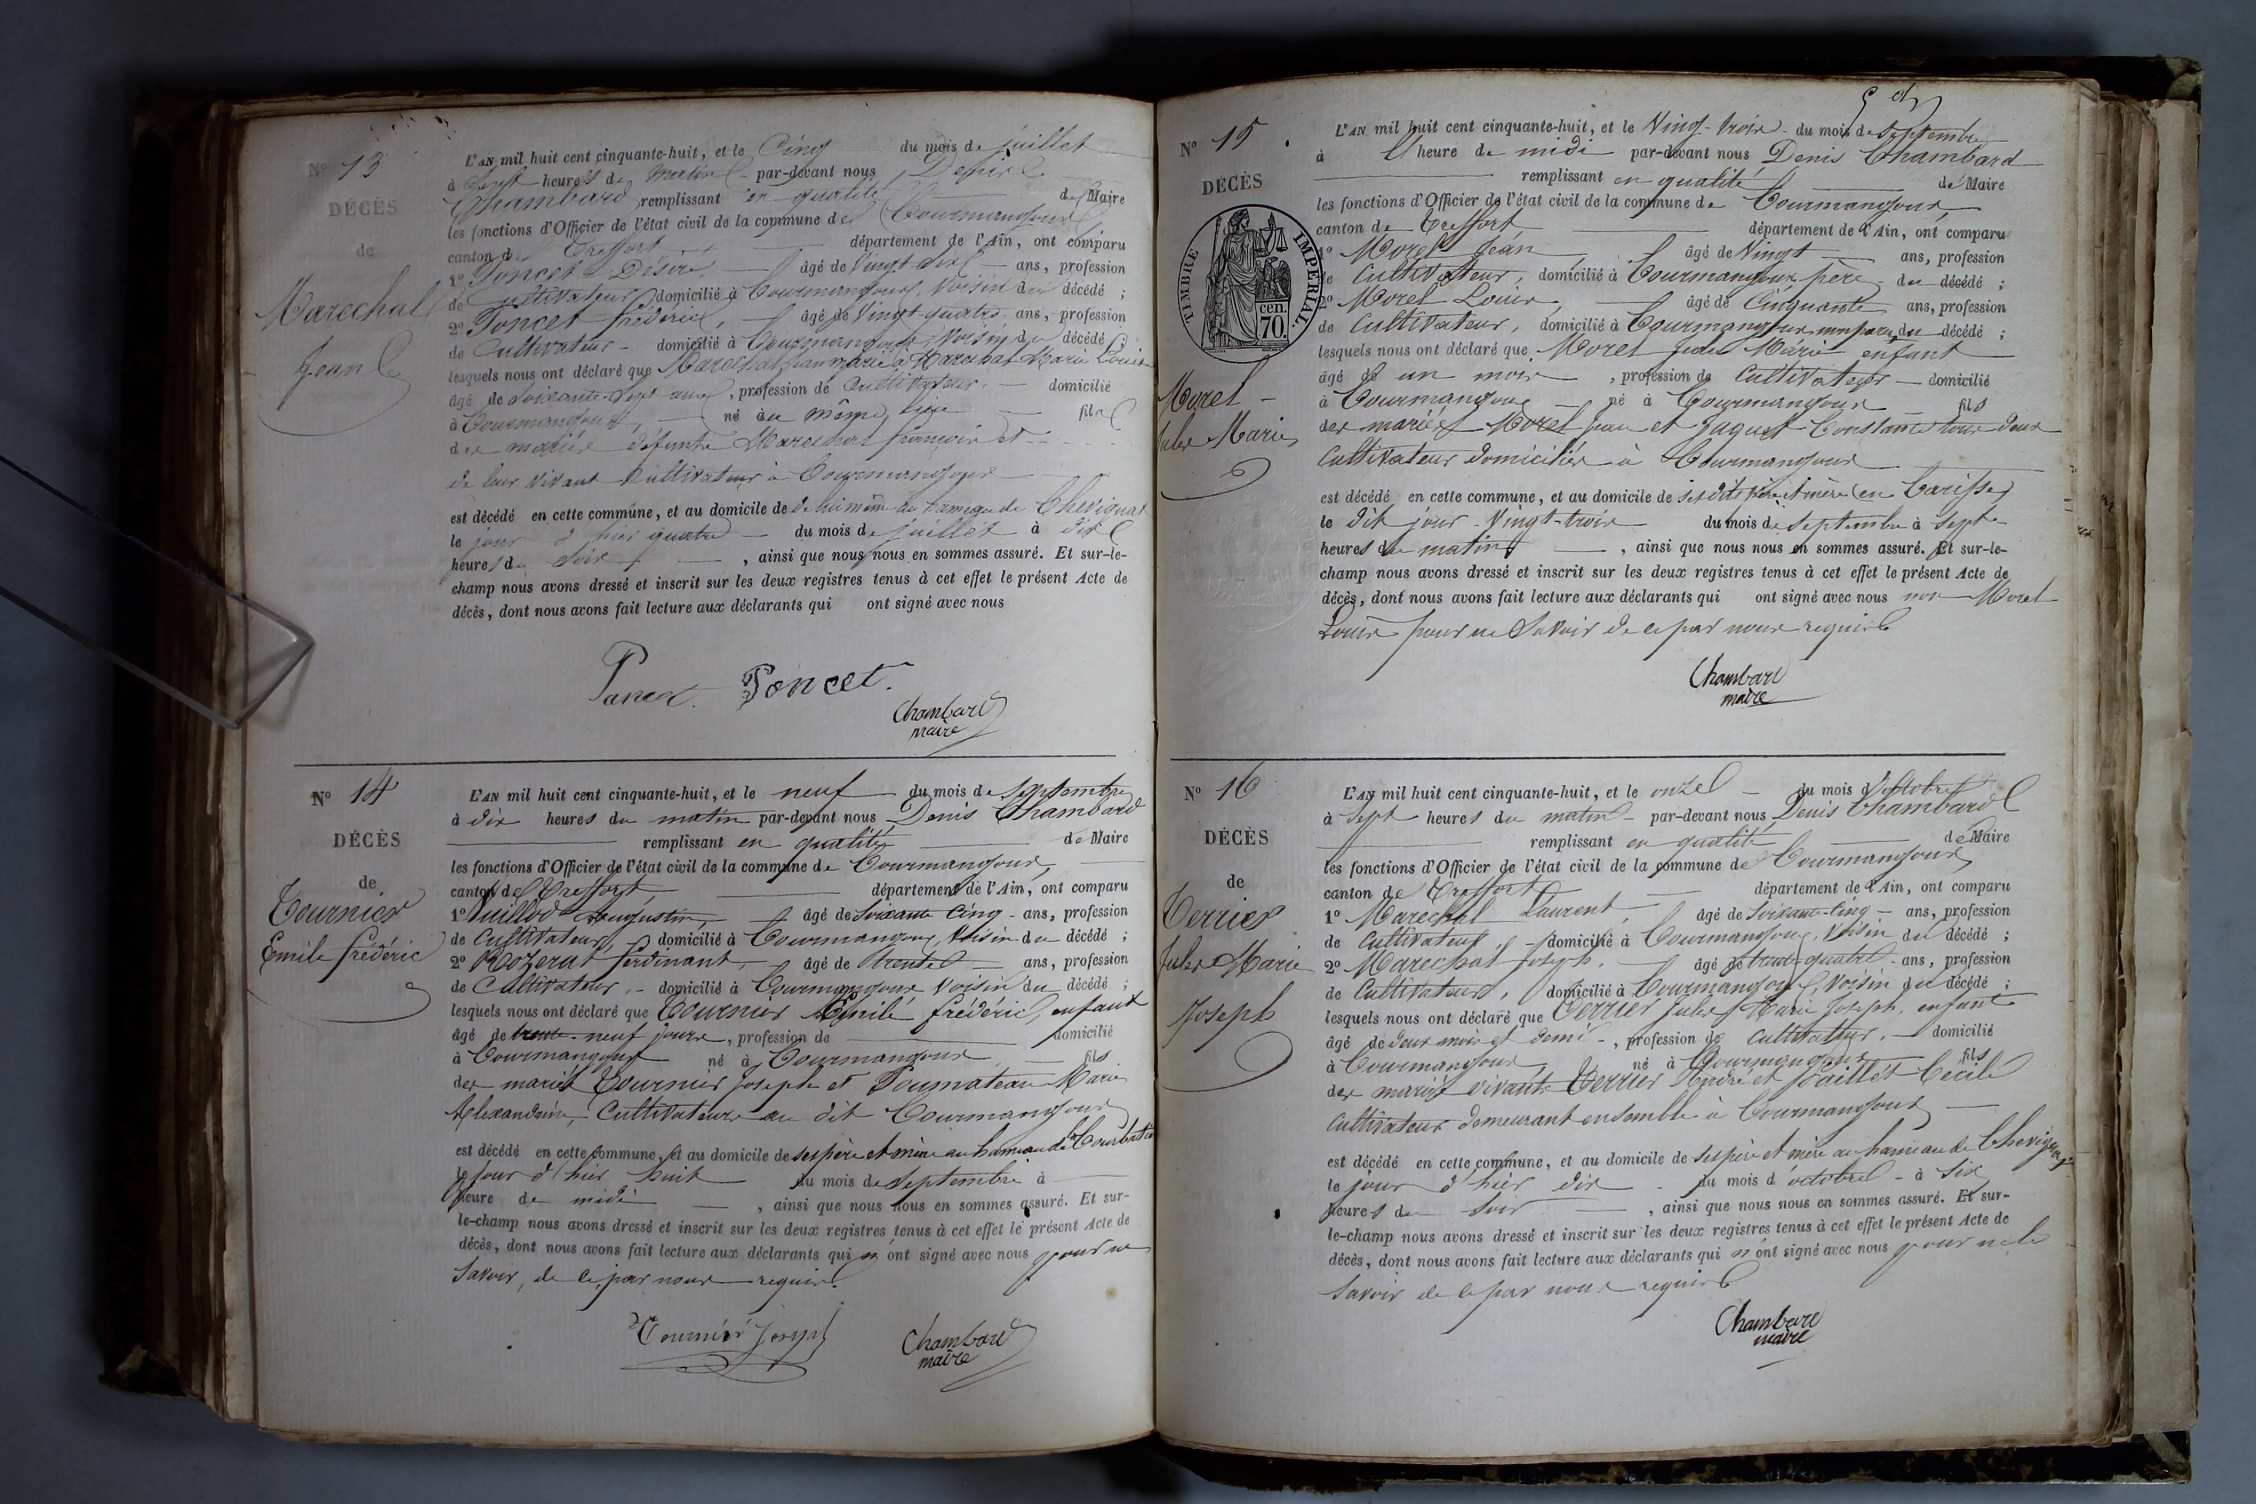 N° 13
DÉCÈS
de
Marechal
Jean
L'AN mil huit cent cinquante-huit, et le Cinq du mois de juillet
à Sept heures du matin par-devant nous Denis
Chambard remplissant en qualité de Maire
les fonctions d'Officier de l'état civil de la commune de Courmangoux
canton de Treffort département de l'Ain, ont comparu
1° Poncet Désiré, âgé de Vingt six ans, profession
de Cultivateur domicilié à Courmangoux, Voisin du décédé ;
2° Poncet frédéric, âgé de Vingt quatre ans, profession
de Cultivateur domicilié à Courmangoux, Voisin du décédé ;
lesquels nous ont déclaré que Marechal Jean marié à Marechal Marie Louise
âgé de Soixante-Sept ans, profession de Cultivateur. domicilié
à Courmangoux, né au même lieu fils
des mariés défunts Marechal françois et
de leur vivant Cultivateur à Courmangoux
est décédé en cette commune, et au domicile de de lui même au hameau de Chevignat
le jour d'hier quatre du mois de juillet à dix
heures du soir, ainsi que nous nous en sommes assuré. Et sur-le-
champ nous avons dressé et inscrit sur les deux registres tenus à cet effet le présent Acte de
décès, dont nous avons fait lecture aux déclarants qui ont signé avec nous
Poncet. Poncet.
Chambard
maire
N° 14
DÉCÈS
de
Tournier
Emile frédéric
L'AN mil huit cent cinquante-huit, et le neuf du mois de Septembre
à dix heures du matin par-devant nous Denis Chambard
remplissant en qualité de Maire
les fonctions d'Officier de l'état civil de la commune de Courmangoux,
canton de Treffort département de l'Ain, ont comparu
1° Vuillod Augustin, âgé de Soixante Cinq ans, profession
de Cultivateur, domicilié à Courmangoux, Voisin du décédé ;
2° Rozerat ferdinant, âgé de trente ans, profession
de Cultivateur, domicilié à Courmangoux Voisin du décédé ;
lesquels nous ont déclaré que Tournier Emile frédéric, enfant
âgé de neuf jours, profession de domicilié
à Courmangoux né à Courmangoux, fils
des mariés Tournier Joseph et Poumateau Marie
Alexandrine, Cultivateurs au dit Courmangoux
est décédé en cette commune, et au domicile de ses père et mère au hameau de la Courbatière
le jour d'hier huit du mois de Septembre à
heure de midi, ainsi que nous nous en sommes assuré. Et sur-
le-champ nous avons dressé et inscrit sur les deux registres tenus à cet effet le présent Acte de
décès, dont nous avons fait lecture aux déclarants qui n'ont signé avec nous pour ne
Savoir, de ce par nous requis.
Tournier Joseph
Chambard
maire
N° 15
DÉCÈS
TIMBRE IMPERIAL.
70 cen.
Morel
Jules Marie
L'AN mil huit cent cinquante-huit, et le Vingt-trois du mois de Septembre
à heure de midi par-devant nous Denis Chambard
remplissant en qualité de Maire
les fonctions d'Officier de l'état civil de la commune de Courmangoux
canton de Treffort département de l'Ain, ont comparu
1° Morel Jean âgé de Vingt ans, profession
de Cultivateur, domicilié à Courmangoux père du décédé ;
2° Morel Louis, âgé de Cinquante ans, profession
de Cultivateur, domicilié à Courmangoux du décédé ;
lesquels nous ont déclaré que Morel Jules Marie enfant
âgé de un mois, profession de Cultivateur domicilié
à Courmangoux né à Courmangoux fils
des mariés Morel Jean et Jaquet Constance tous deux
Cultivateur domiciliés à Courmangoux
est décédé en cette commune, et au domicile de ses dits père et mère
le dit jour Vingt-trois du mois de septembre à sept
heures du matin, ainsi que nous nous en sommes assuré. Et sur-le-
champ nous avons dressé et inscrit sur les deux registres tenus à cet effet le présent Acte de
décès, dont nous avons fait lecture aux déclarants qui ont signé avec nous non Morel
Louis pour ne Savoir de ce par nous requis
Chambard
maire
N° 16
DÉCÈS
de
Terrier
Jules Marie
Joseph
L'AN mil huit cent cinquante-huit, et le onze du mois d'Octobre
à Sept heures du matin par-devant nous Denis Chambard
remplissant en qualité de Maire
les fonctions d'Officier de l'état civil de la commune de Courmangoux
canton de Treffort département de l'Ain, ont comparu
1° Marechal Laurent, âgé de Soixante-Cinq ans, profession
de Cultivateur, domicilié à Courmangoux, Voisin du décédé ;
2° Marechal Joseph, âgé de trente-quatre ans, profession
de Cultivateur, domicilié à Courmangoux, Voisin du décédé ;
lesquels nous ont déclaré que Terrier Jules Marie Joseph, enfant
âgé de deux mois et demi, profession de Cultivateur, domicilié
à Courmangoux né à Courmangoux fils
des mariés vivants Terrier André et Paillet Cécile
Cultivateur demeurant ensemble à Courmangoux
est décédé en cette commune, et au domicile de ses père et mère au hameau de Chevignat
le jour d'hier dix du mois d'octobre à six
heures du soir, ainsi que nous nous en sommes assuré. Et sur-
le-champ nous avons dressé et inscrit sur les deux registres tenus à cet effet le présent Acte de
décès, dont nous avons fait lecture aux déclarants qui n'ont signé avec nous pour ne le
savoir de ce par nous requis
Chambard
maire